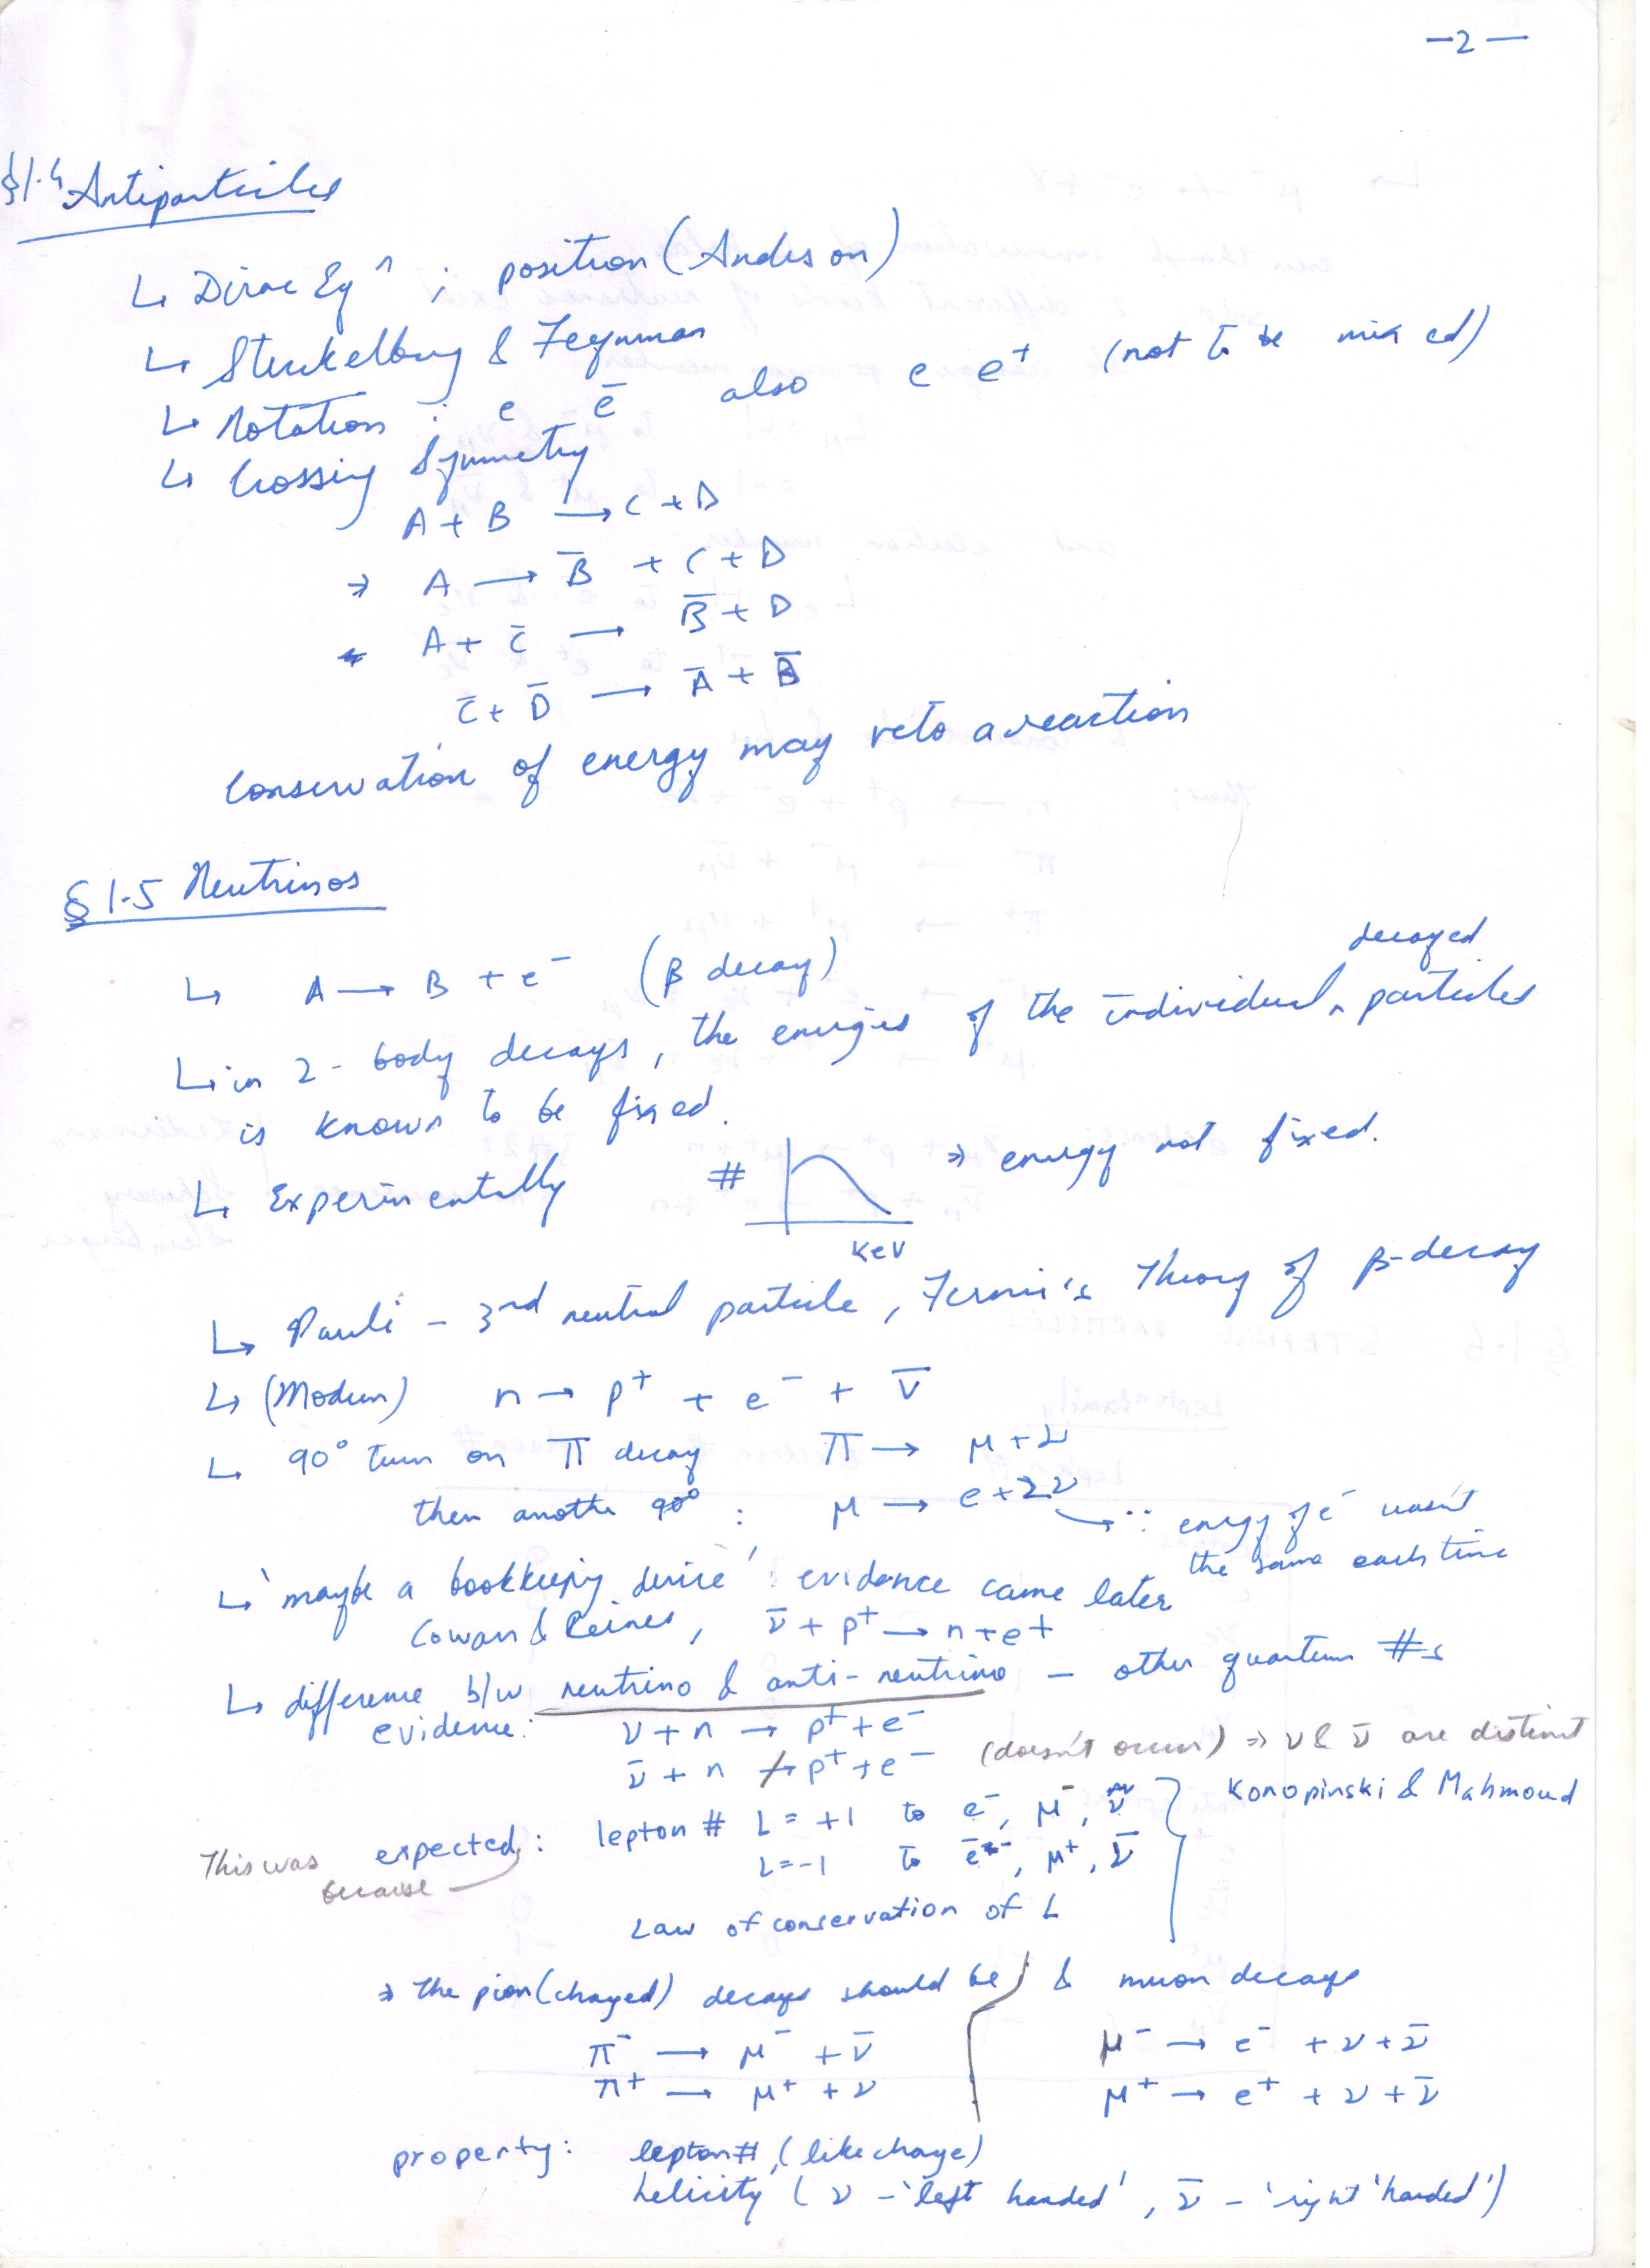 —2—
§1.4 Antiparticles
↳ Dirac Eqⁿ ; position (Anderson)
↳ Stuckelburg & Feynman
↳ Notation : e ē also e e⁺ (not to be mixed)
↳ Crossing Symmetry
A + B → C + D
⇒ A → B̄ + C + D
A + C̄ → B̄ + D
C̄ + D̄ → Ā + B̄
Conservation of energy may veto a reaction
§ 1.5 Neutrinos
↳ A → B + e⁻ (β decay)
decayed
↳ in 2-body decays, the energies of the individual ^ particles
is known to be fixed.
↳ Experimentally # ⇒ energy not fixed.
KeV
↳ Pauli – 3rd neutral particle, Fermi's Theory of β-decay
↳ (Modern) n → p⁺ + e⁻ + ν̄
↳ 90° turn on π decay π → μ + ν
then another 90° : μ → e + 2ν
∵ energy of e⁻ wasn't
the same each time
↳ 'maybe a bookkeeping device' ; evidence came later
Cowan & Reines, ν̄ + p⁺ → n + e⁺
↳ difference b/w neutrino & anti-neutrino – other quantum #s
evidence: ν + n → p⁺ + e⁻
ν̄ + n ↛ p⁺ + e⁻ (doesn't occur) ⇒ ν & ν̄ are distinct
This was because expected : lepton # L = +1 to e⁻, μ⁻, ν } Konopinski & Mahmoud
L = -1 to ē, μ⁺, ν̄
Law of conservation of L
⇒ The pion (charged) decays should be & muon decays
π⁻ → μ⁻ + ν̄ μ⁻ → e⁻ + ν + ν̄
π⁺ → μ⁺ + ν μ⁺ → e⁺ + ν + ν̄
property: lepton #, (like charge)
helicity (ν – 'left handed', ν̄ – 'right 'handed')